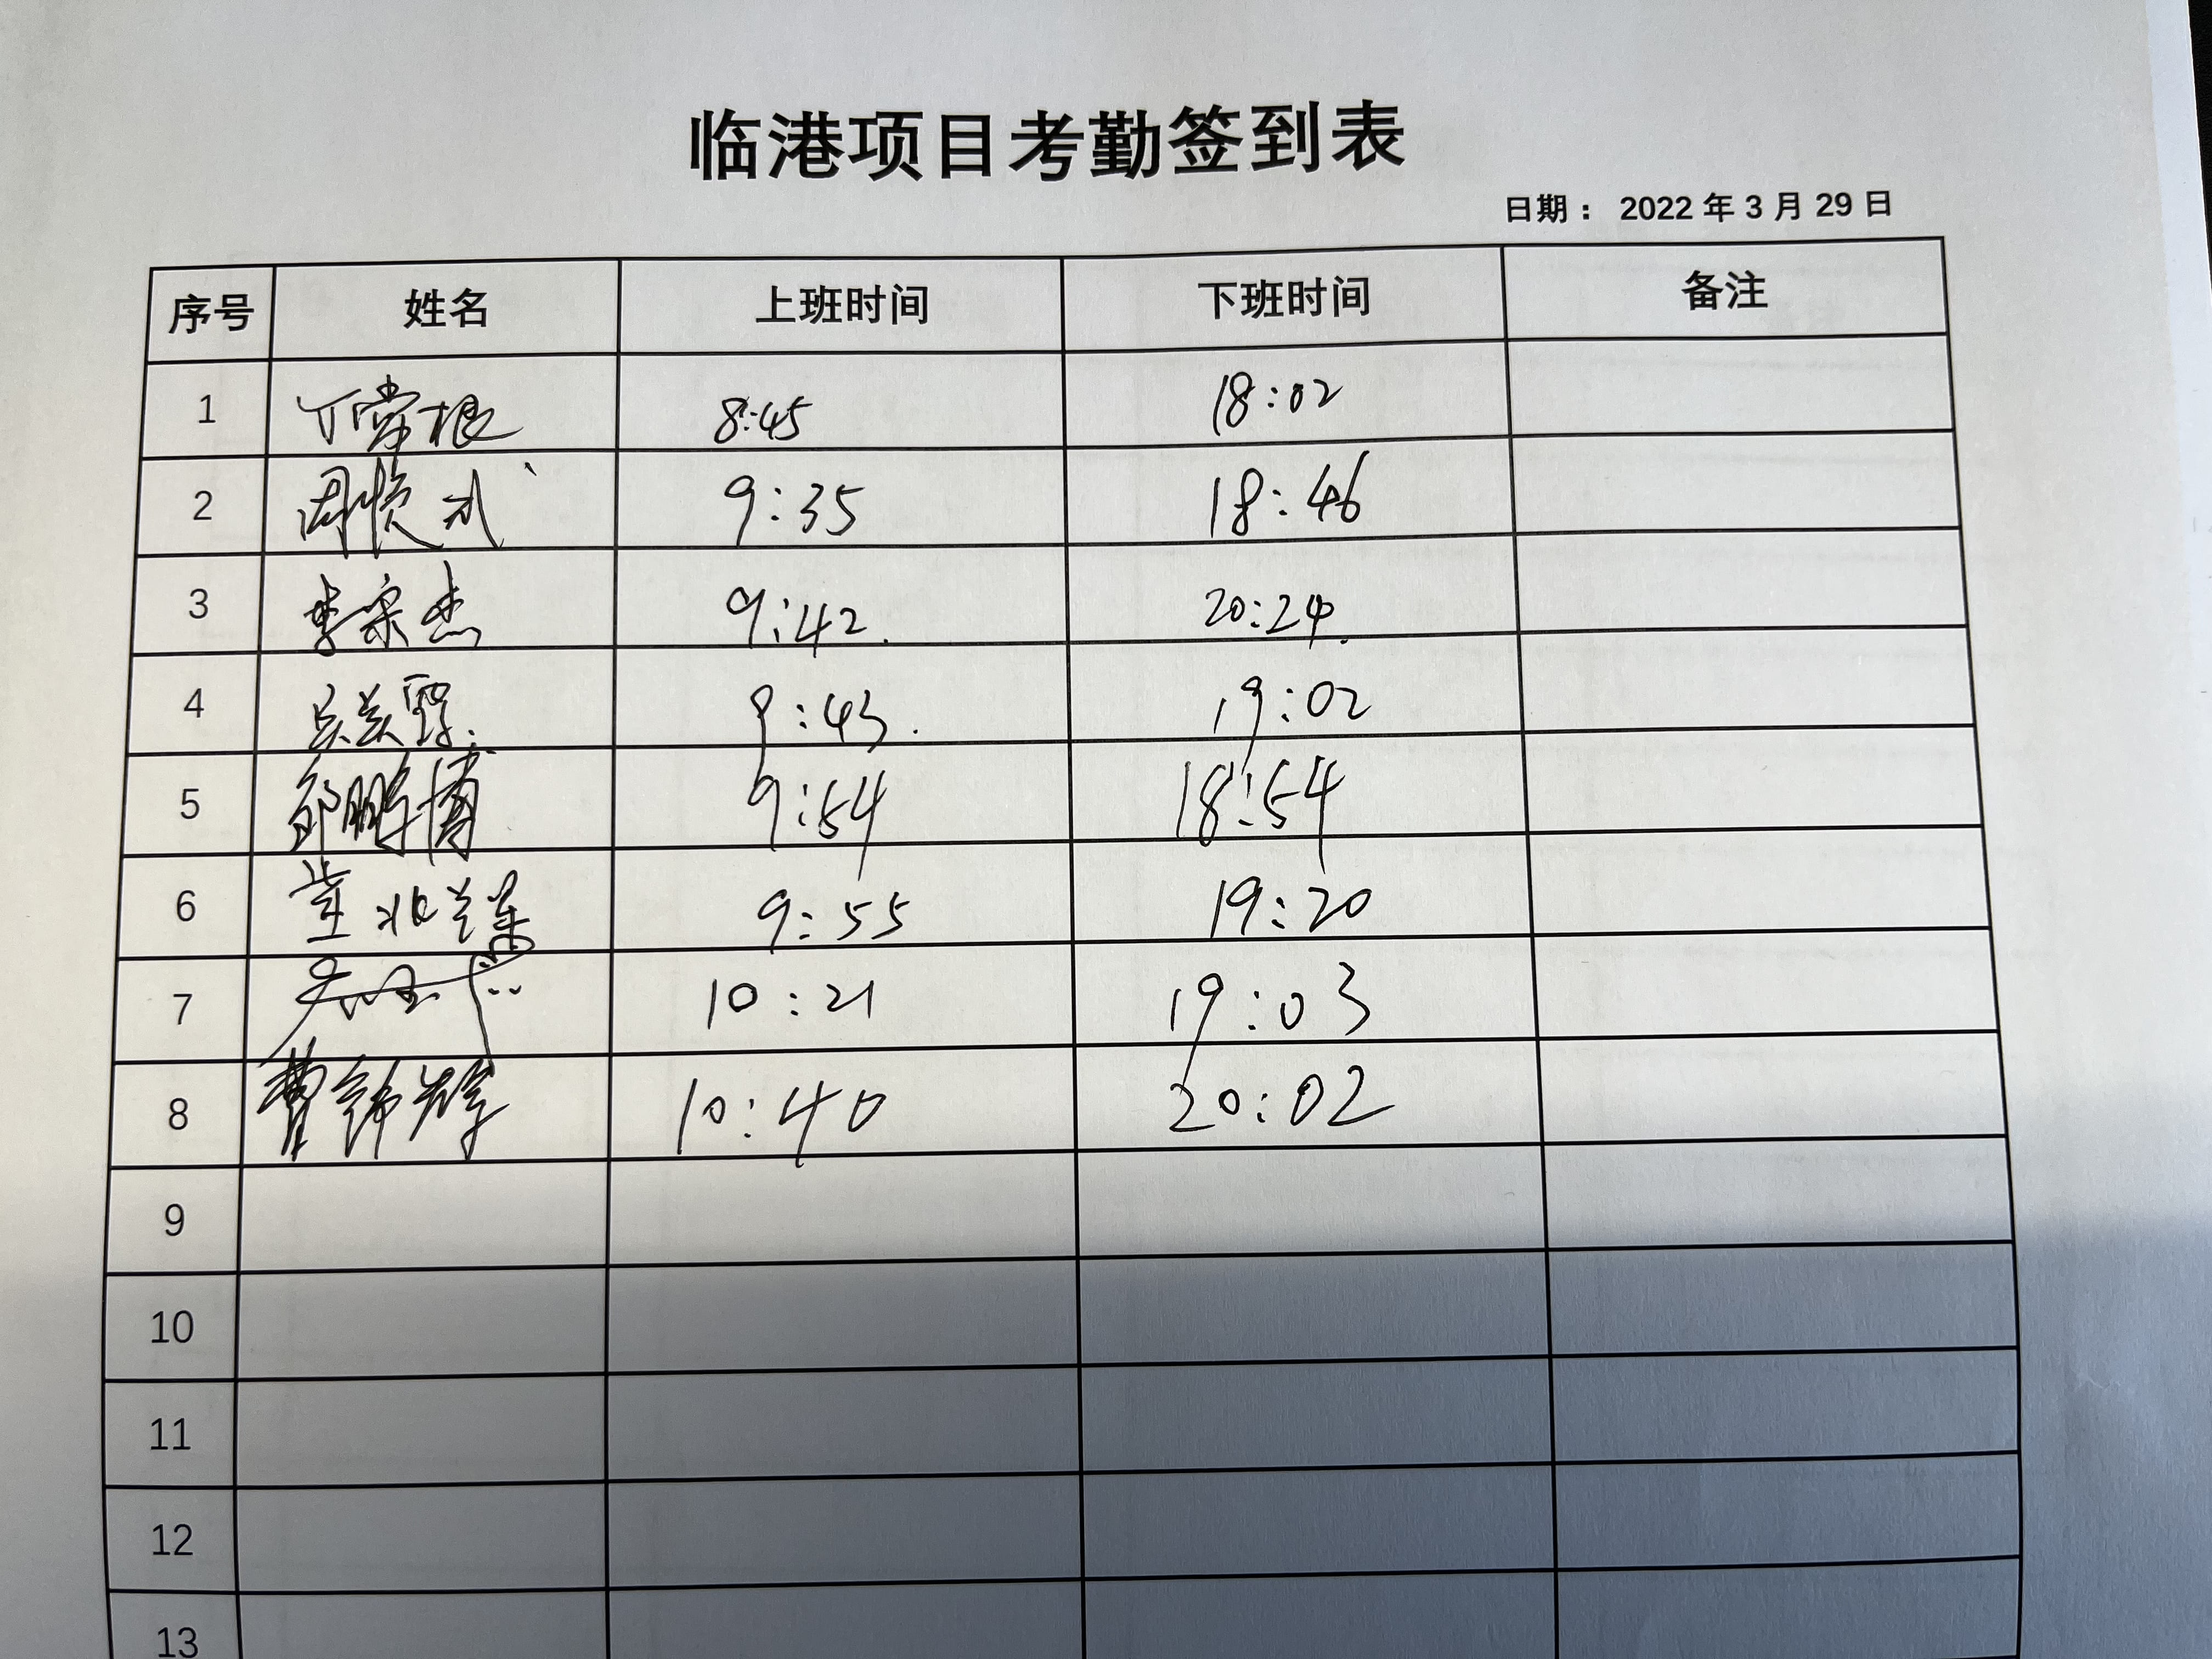 临港项目考勤签到表
日期： 2022 年 3 月 29 日
序号 姓名 上班时间 下班时间 备注
1 丁常根 8:45 18:02
2 9:35 18:46
3 李宗杰 9:42. 20:24.
4 9:43. 19:02
5 邹鹏博 9:54 18:54
6 9:55 19:20
7 10:21 19:03
8 10:40 20:02
9
10
11
12
13